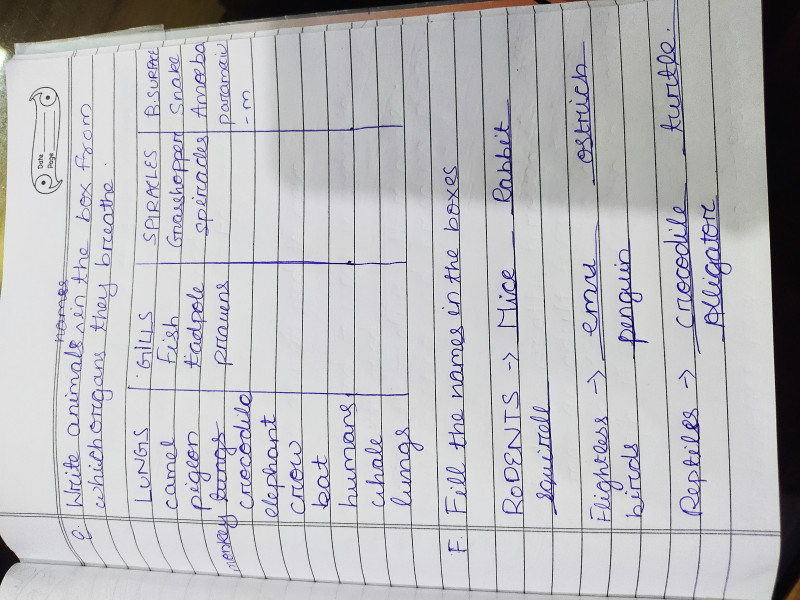 Date
Page
names
C. Write animals in the box from
which organs they breathe.
LUNGS GILLS SPIRACLES B.SURFACE
camel Fish Grasshopper Snake
pigeon tadpole spiracles Amoeba
monkey lungs prawns paramaiu
crocodile -m
elephant
crow
bat
humans
whale
lungs
F. Fill the names in the boxes
RODENTS -> Mice Rabbit
squirell
Flightless -> emu ostrich
birds penguin
Reptiles -> crocodile turtle.
Alligator